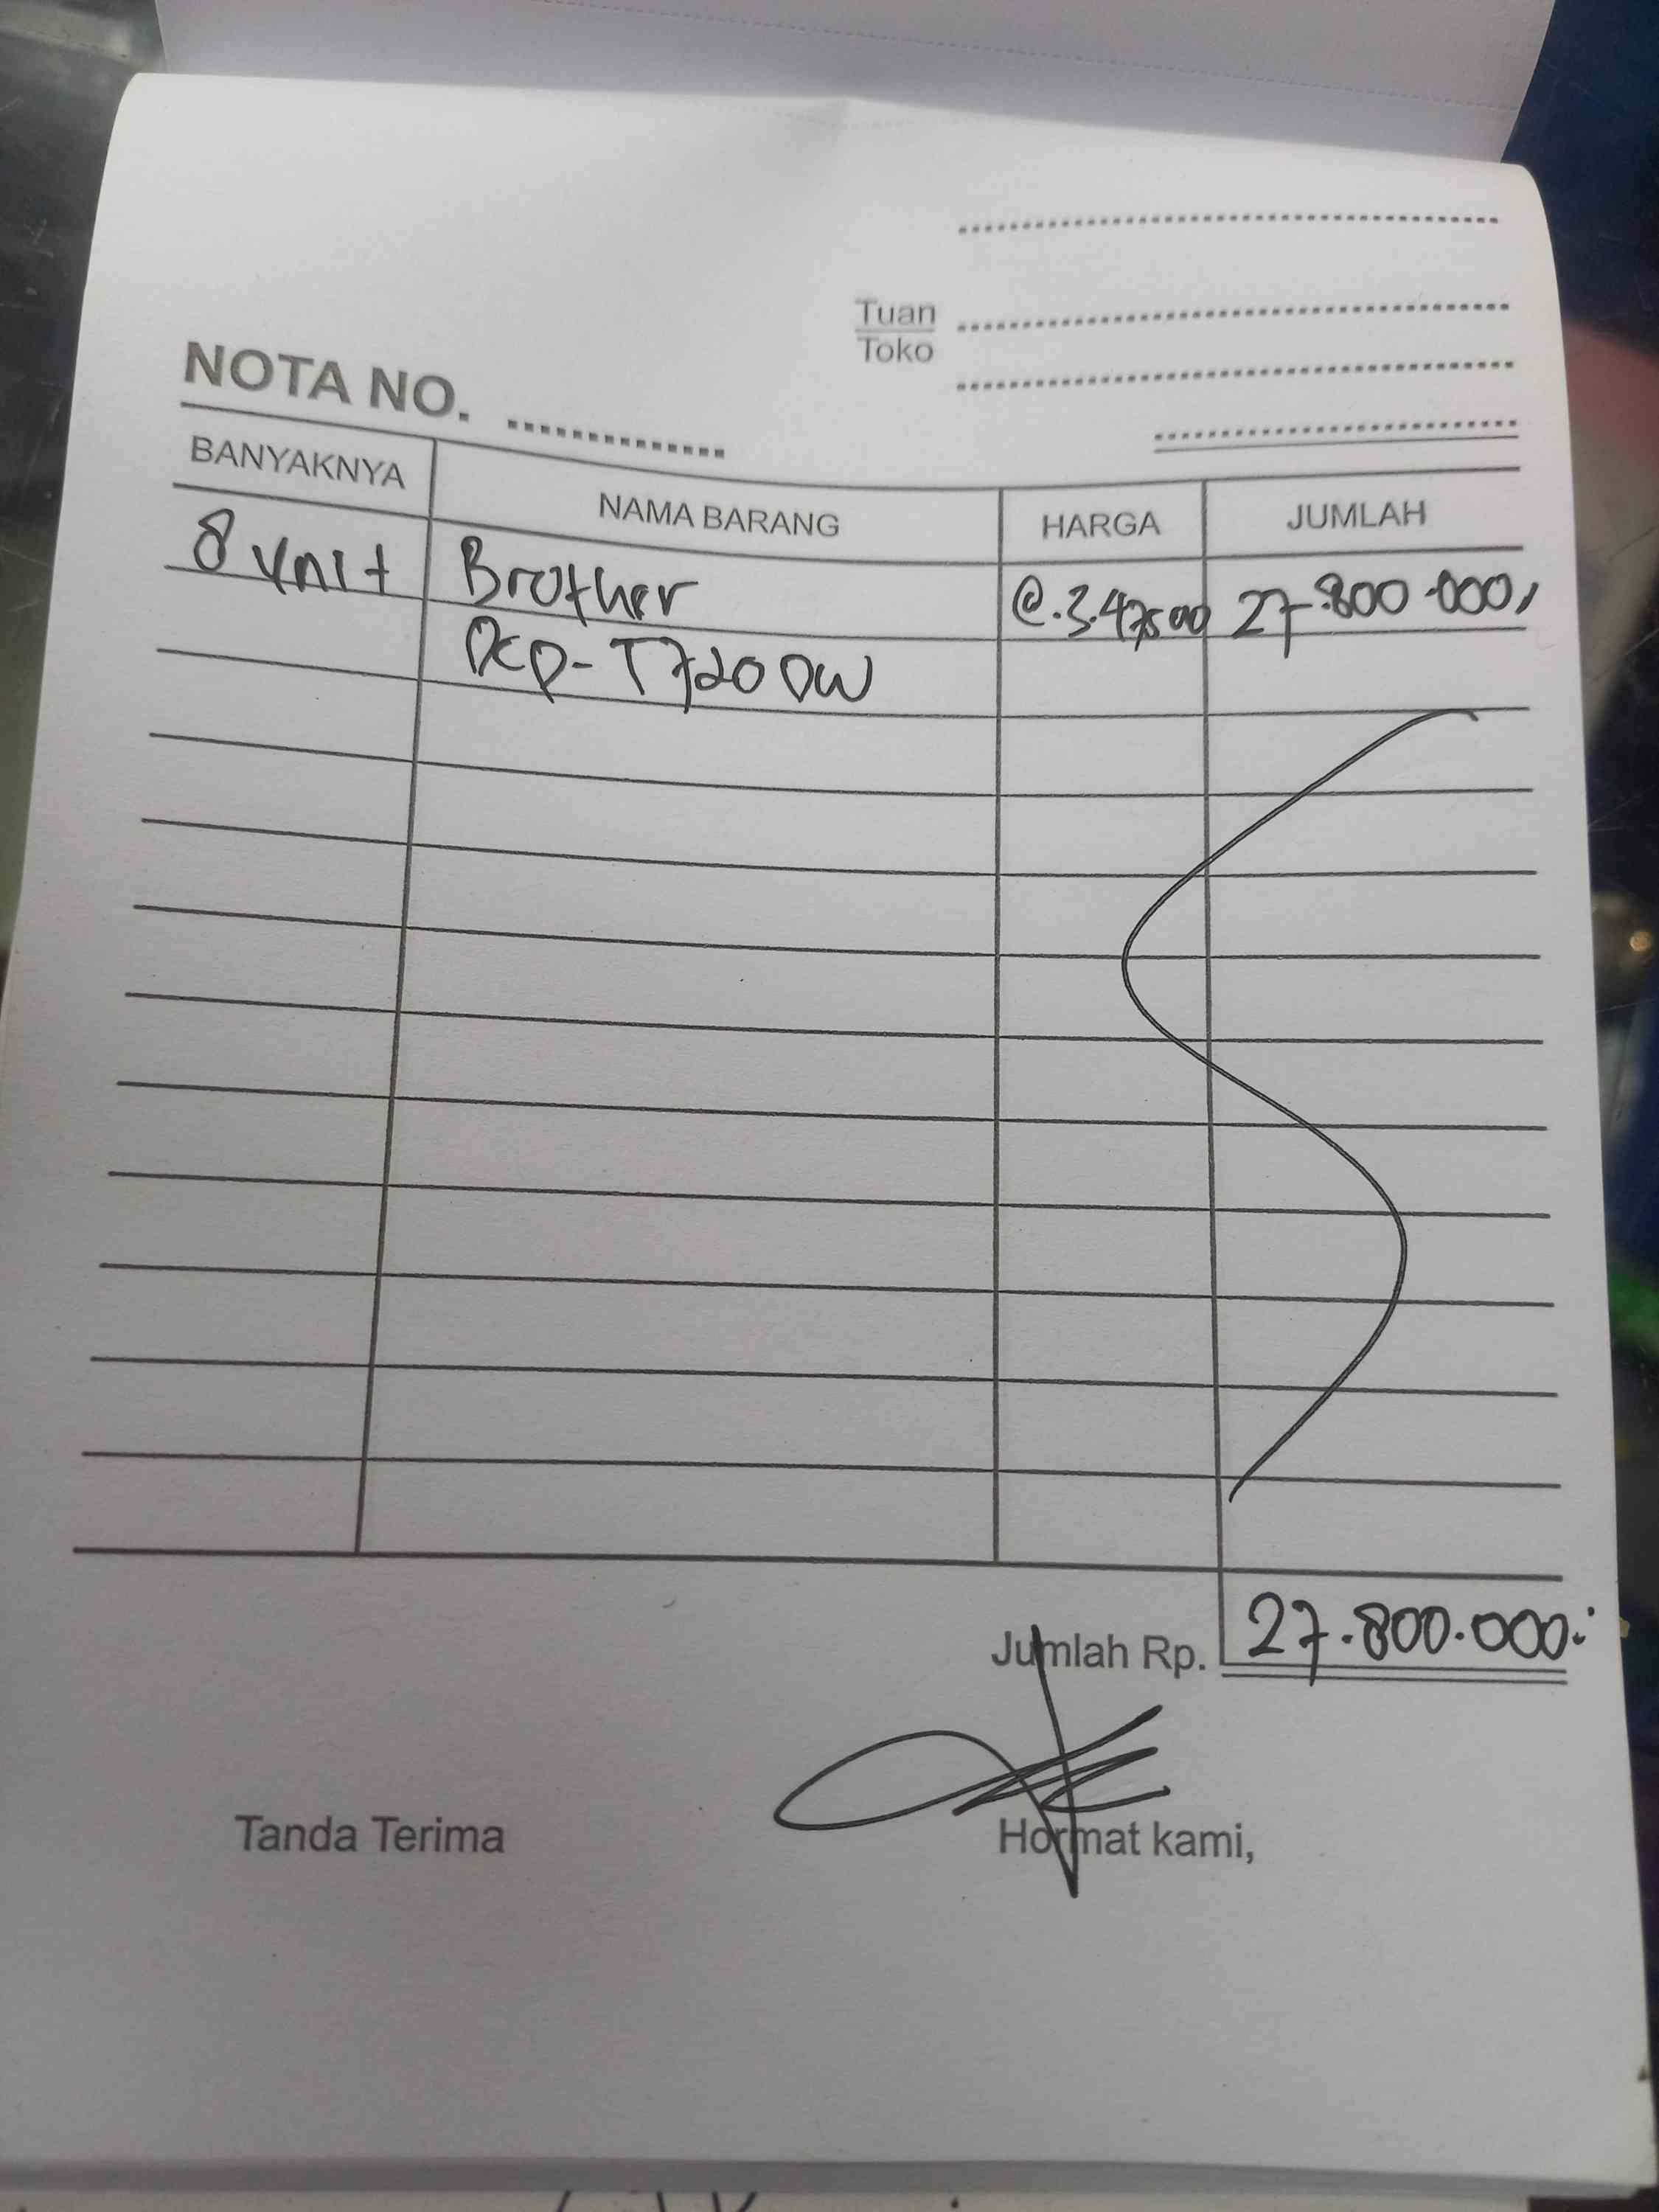 Tuan
Toko
NOTA NO.
BANYAKNYA NAMA BARANG HARGA JUMLAH
8 Unit Brother @.3.47500 27.800.000,
DCP-T720DW
Jumlah Rp. 27.800.000.
Tanda Terima Hormat kami,